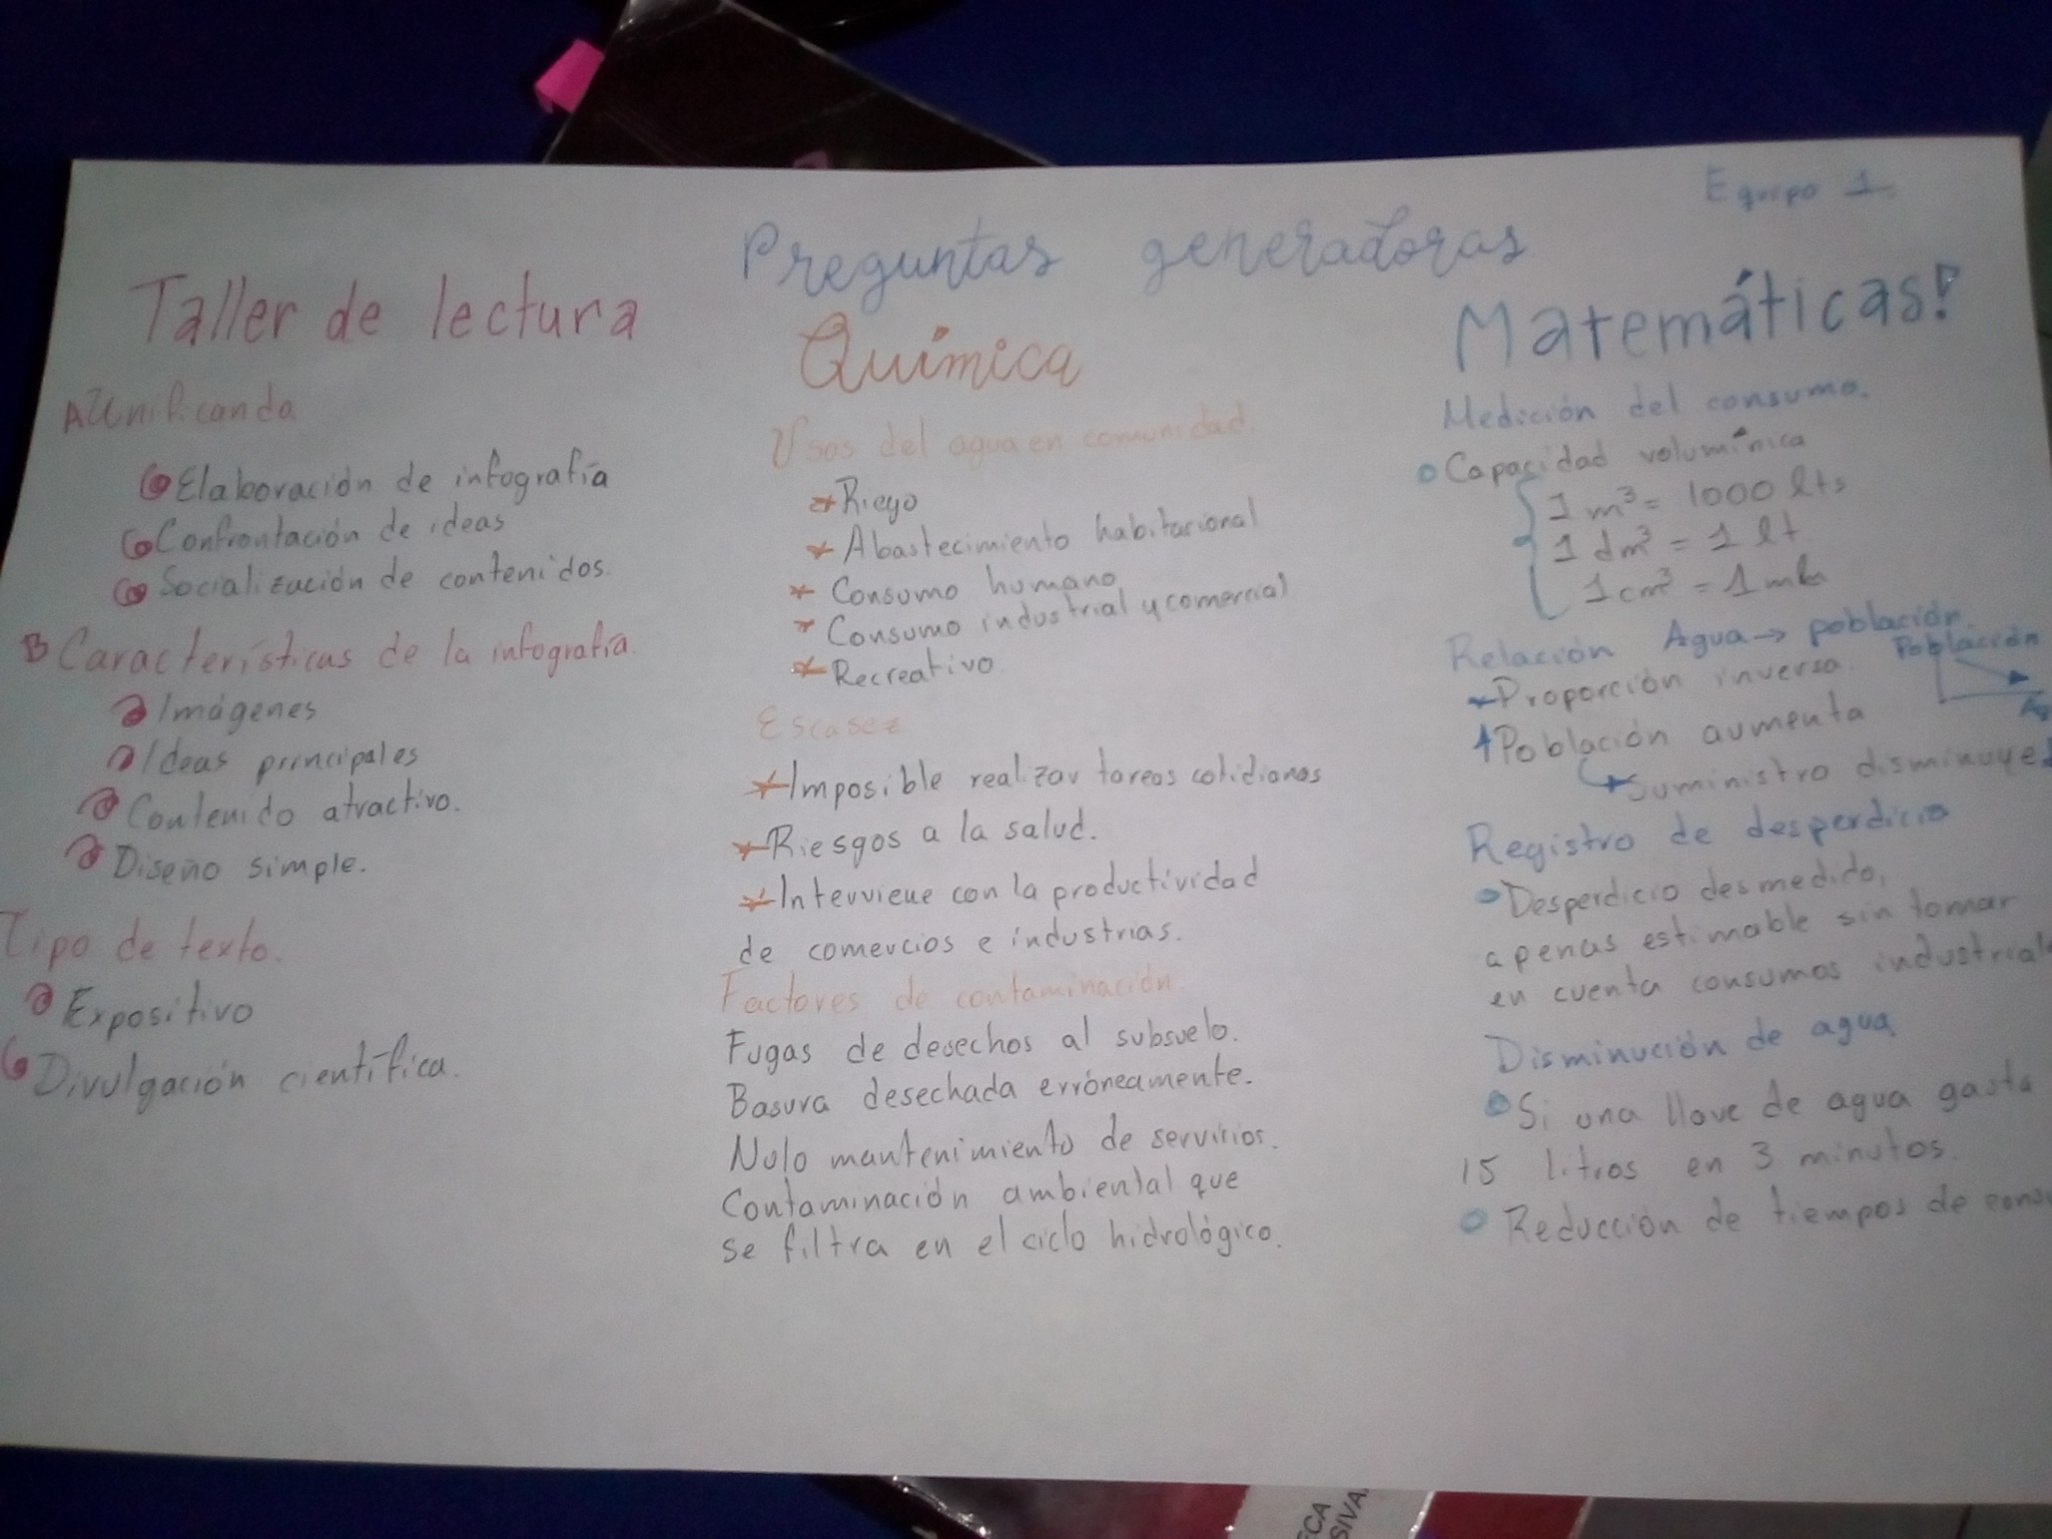 Equipo 1.
Preguntas generadoras
Taller de lectura
Elaboración de infografía
Confrontación de ideas
Socialización de contenidos.
B Características de la infografía.
Imágenes
Ideas principales
Contenido atractivo.
Diseño simple.
Tipo de texto.
Expositivo
Divulgación científica.
Química
Usos del agua en comunidad.
Riego
Abastecimiento habitacional
Consumo humano
Consumo industrial y comercial
Recreativo
Escasez
Imposible realizar tareas cotidianas
Riesgos a la salud.
Interviene con la productividad
de comercios e industrias.
Factores de contaminación.
Fugas de desechos al subsuelo.
Basura desechada erróneamente.
Nulo mantenimiento de servicios.
Contaminación ambiental que
se filtra en el ciclo hidrológico.
Matemáticas!
Medición del consumo.
Capacidad volumínica
1 m³ = 1000 lts
1 dm³ = 1 lt
1 cm³ = 1 ml
Relación Agua → población.
Proporción inversa.
Población
↑ Población aumenta
Suministro disminuye
Registro de desperdicio
Desperdicio desmedido,
apenas estimable sin tomar
en cuenta consumos
Disminución de agua
Si una llave de agua gasta
15 litros en 3 minutos.
Reducción de tiempos de
ECA
SIVA